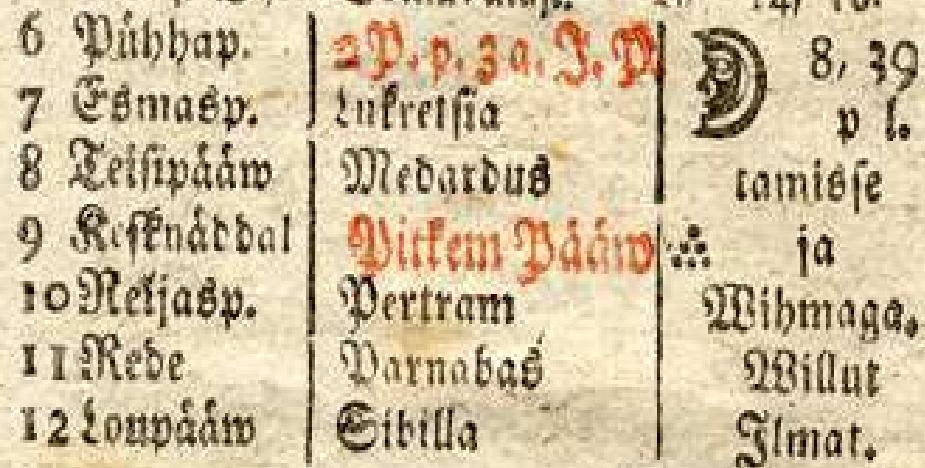 6 Pühhap. 2 P. p. 3 a. J. P. 8, 39
7 Esmasp. Lukretsia p l.
8 Teisipääw Medardus tamisse
9 Kesknäddal Pitkem Pääw ja
10 Neljasp. Pertram Wihmaga.
11 Rede Parnabas Willut
12 Loupääw Sibilla Ilmat.